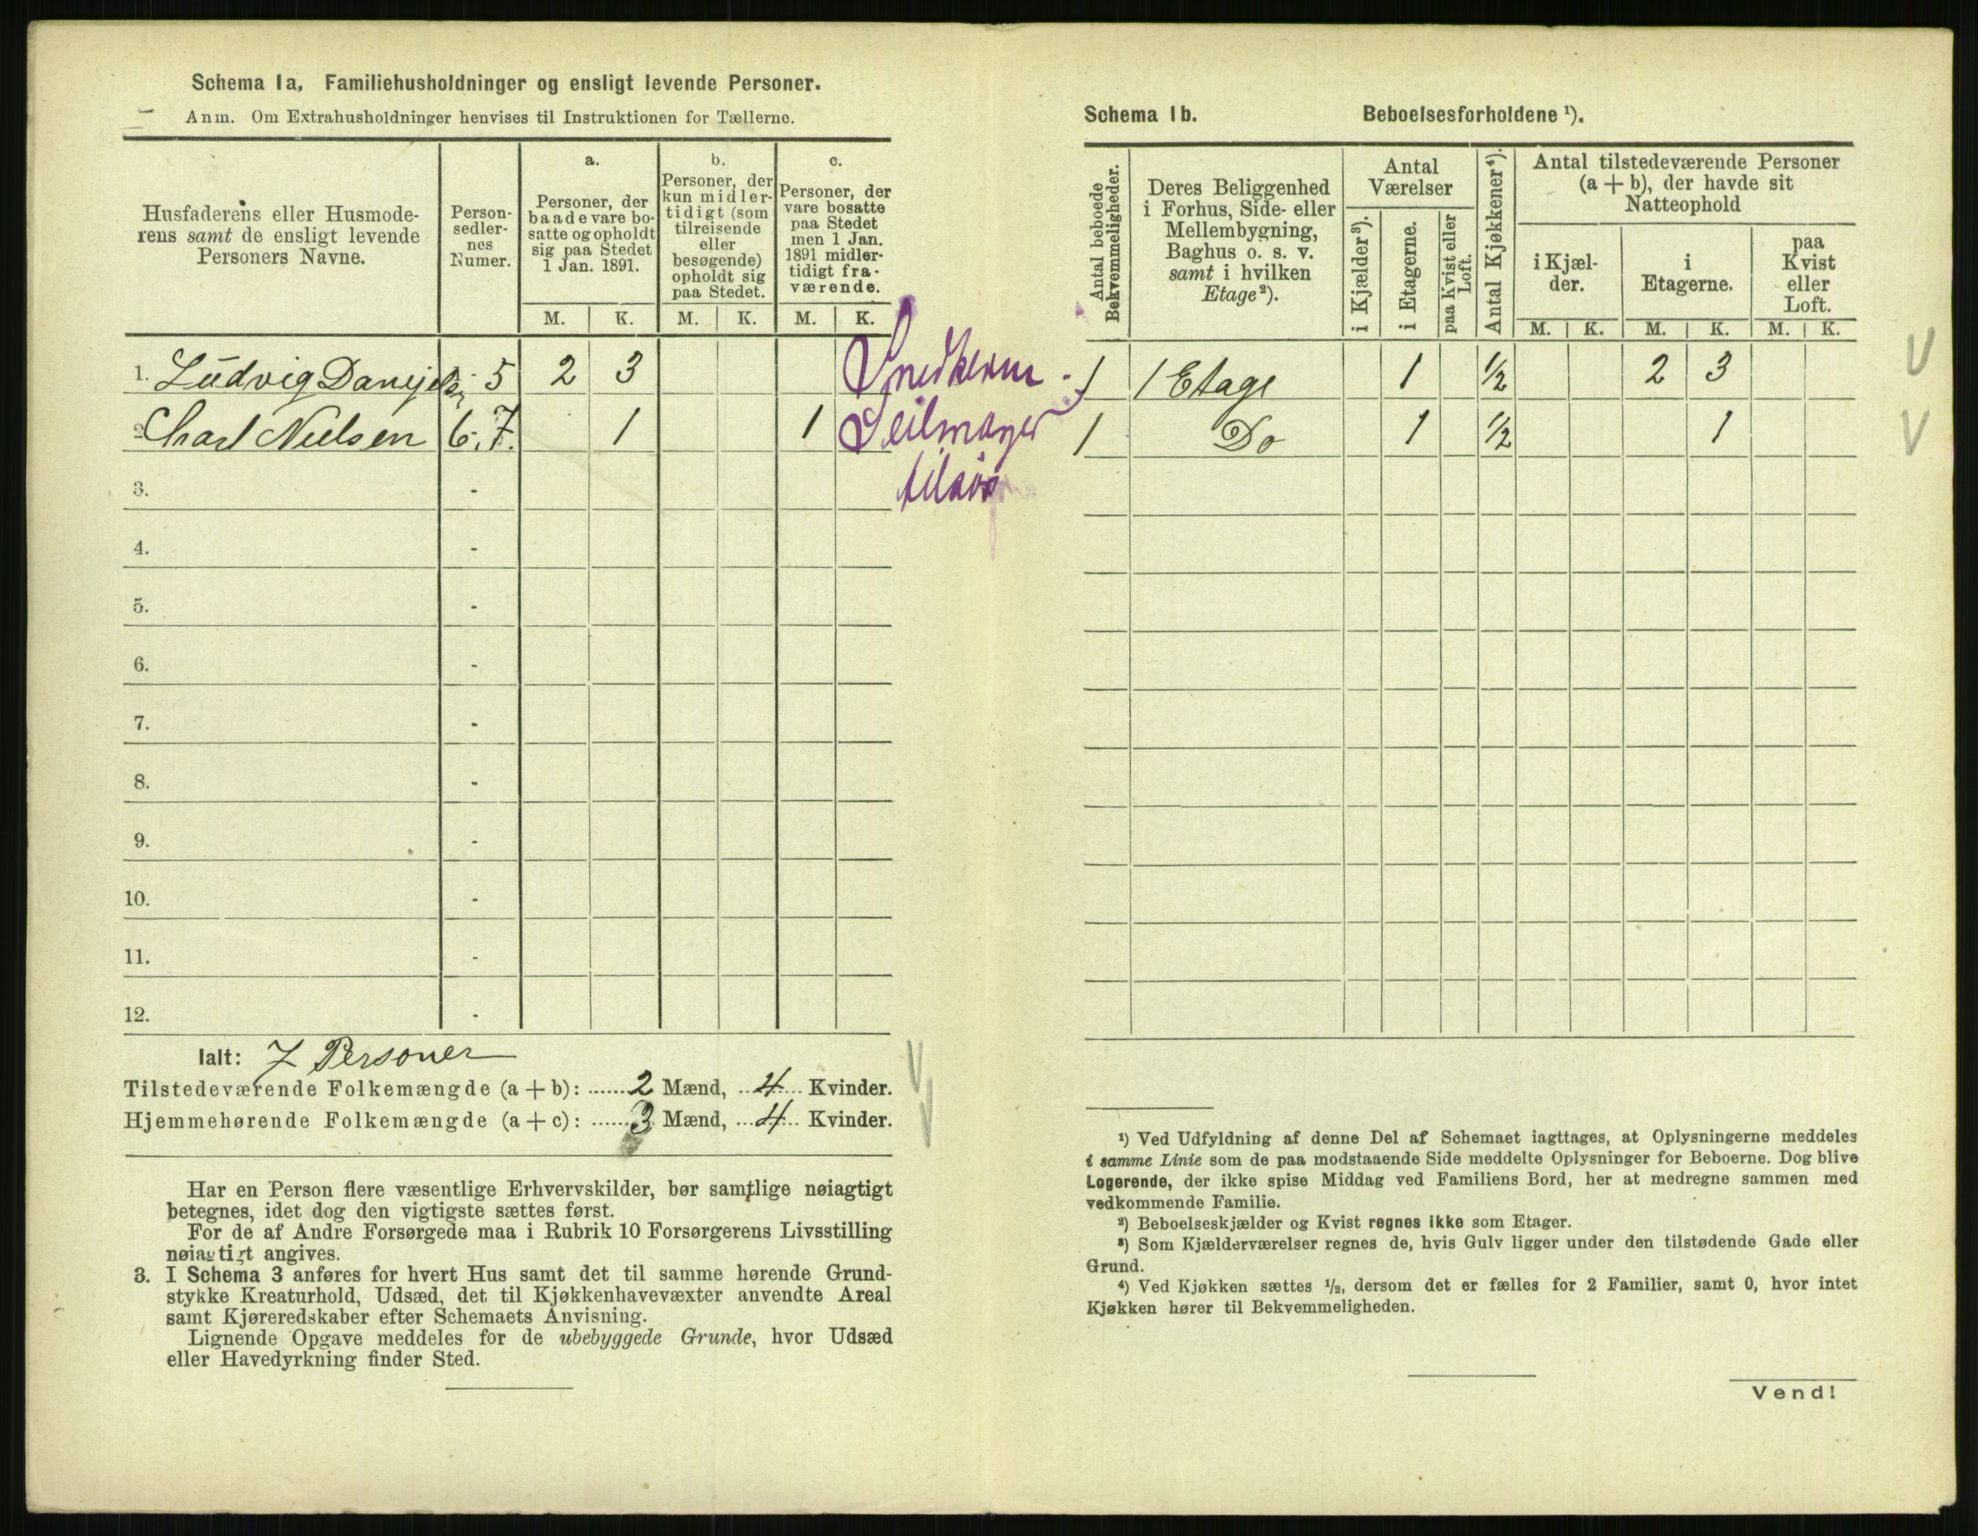 Schema 1a. Familiehusholdninger og ensligt levende Personer.
Anm. Om Extrahusholdninger henvises til Instruktionen for Tællerne.
Husfaderens eller Husmode-
rens samt de ensligt levende
Personers Navne.
Person-
sedler-
nes
Numer.
a.
Personer, der
baade vare bo-
satte og opholdt
sig paa Stedet
1 Jan. 1891.
b.
Personer, der
kun midler-
tidigt (som
tilreisende
eller
besøgende)
opholdt sig
paa Stedet.
c.
Personer, der
vare bosatte
paa Stedet
men 1 Jan.
1891 midler-
tidigt fra-
værende.
M. K. M. K. M. K.
1. Ludvig 1 - 5 2 3
2. Charl Nielsen 6. 7. 1 1
3. -
4. -
5. -
6. -
7. -
8. -
9. -
10. -
11. -
12. -
Ialt: 7 Personer
Tilstedeværende Folkemængde (a + b): 2 Mænd, 4 Kvinder.
Hjemmehørende Folkemængde (a + c): 3 Mænd, 4 Kvinder.
Har en Person flere væsentlige Erhvervskilder, bør samtlige nøiagtigt
betegnes, idet dog den vigtigste sættes først.
For de af Andre Forsørgede maa i Rubrik 10 Forsørgerens Livsstilling
nøiagtigt angives.
3. I Schema 3 anføres for hvert Hus samt det til samme hørende Grund-
stykke Kreaturhold, Udsæd, det til Kjøkkenhavevæxter anvendte Areal
samt Kjøreredskaber efter Schemaets Anvisning.
Lignende Opgave meddeles for de ubebyggede Grunde, hvor Udsæd
eller Havedyrkning finder Sted.
Schema 1b. Beboelsesforholdene ¹).
Antal beboede
Bekvemmeligheder.
Deres Beliggenhed
i Forhus, Side- eller
Mellembygning,
Baghus o. s. v.
samt i hvilken
Etage²).
Antal
Værelser
i Kjælder³).
i Etagerne.
paa Kvist eller
Loft.
Antal Kjøkkener⁴).
Antal tilstedeværende Personer
(a + b), der havde sit
Natteophold
i Kjæl-
der.
i
Etagerne.
paa
Kvist
eller
Loft.
M. K. M. K. M. K.
1 1 Etage 1 ½ 2 3
1 Do 1 ½ 1
¹) Ved Udfyldning af denne Del af Schemaet iagttages, at Oplysningerne meddeles
i samme Linie som de paa modstaaende Side meddelte Oplysninger for Beboerne. Dog blive
Logerende, der ikke spise Middag ved Familiens Bord, her at medregne sammen med
vedkommende Familie.
²) Beboelseskjælder og Kvist regnes ikke som Etager.
³) Som Kjælderværelser regnes de, hvis Gulv ligger under den tilstødende Gade eller
Grund.
⁴) Ved Kjøkken sættes ½, dersom det er fælles for 2 Familier, samt 0, hvor intet
Kjøkken hører til Bekvemmeligheden.
Vend!